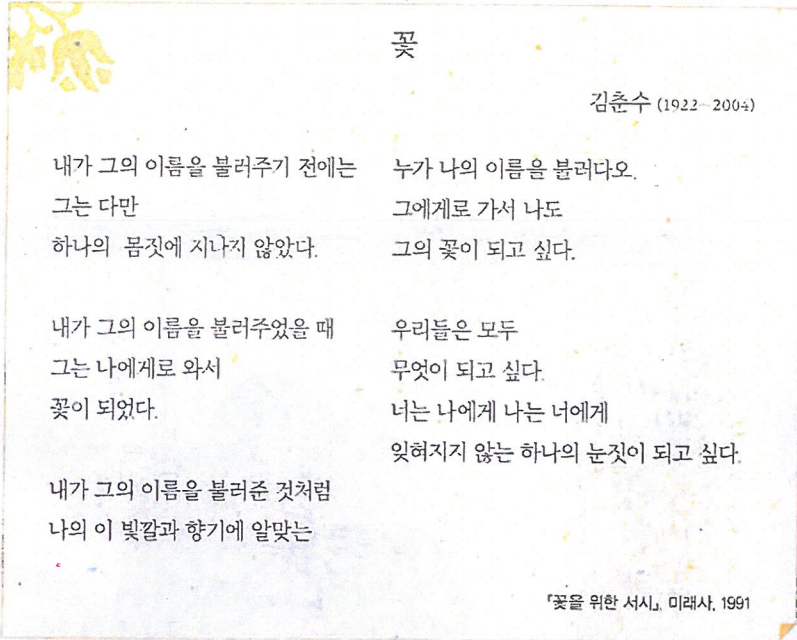 꽃
김춘수 (1922~2004)
내가 그의 이름을 불러주기 전에는
그는 다만
하나의 몸짓에 지나지 않았다.
내가 그의 이름을 불러주었을 때
그는 나에게로 와서
꽃이 되었다.
내가 그의 이름을 불러준 것처럼
나의 이 빛깔과 향기에 알맞는
누가 나의 이름을 불러다오.
그에게로 가서 나도
그의 꽃이 되고 싶다.
우리들은 모두
무엇이 되고 싶다.
너는 나에게 나는 너에게
잊혀지지 않는 하나의 눈짓이 되고 싶다.
『꽃을 위한 서시』, 미래사, 1991